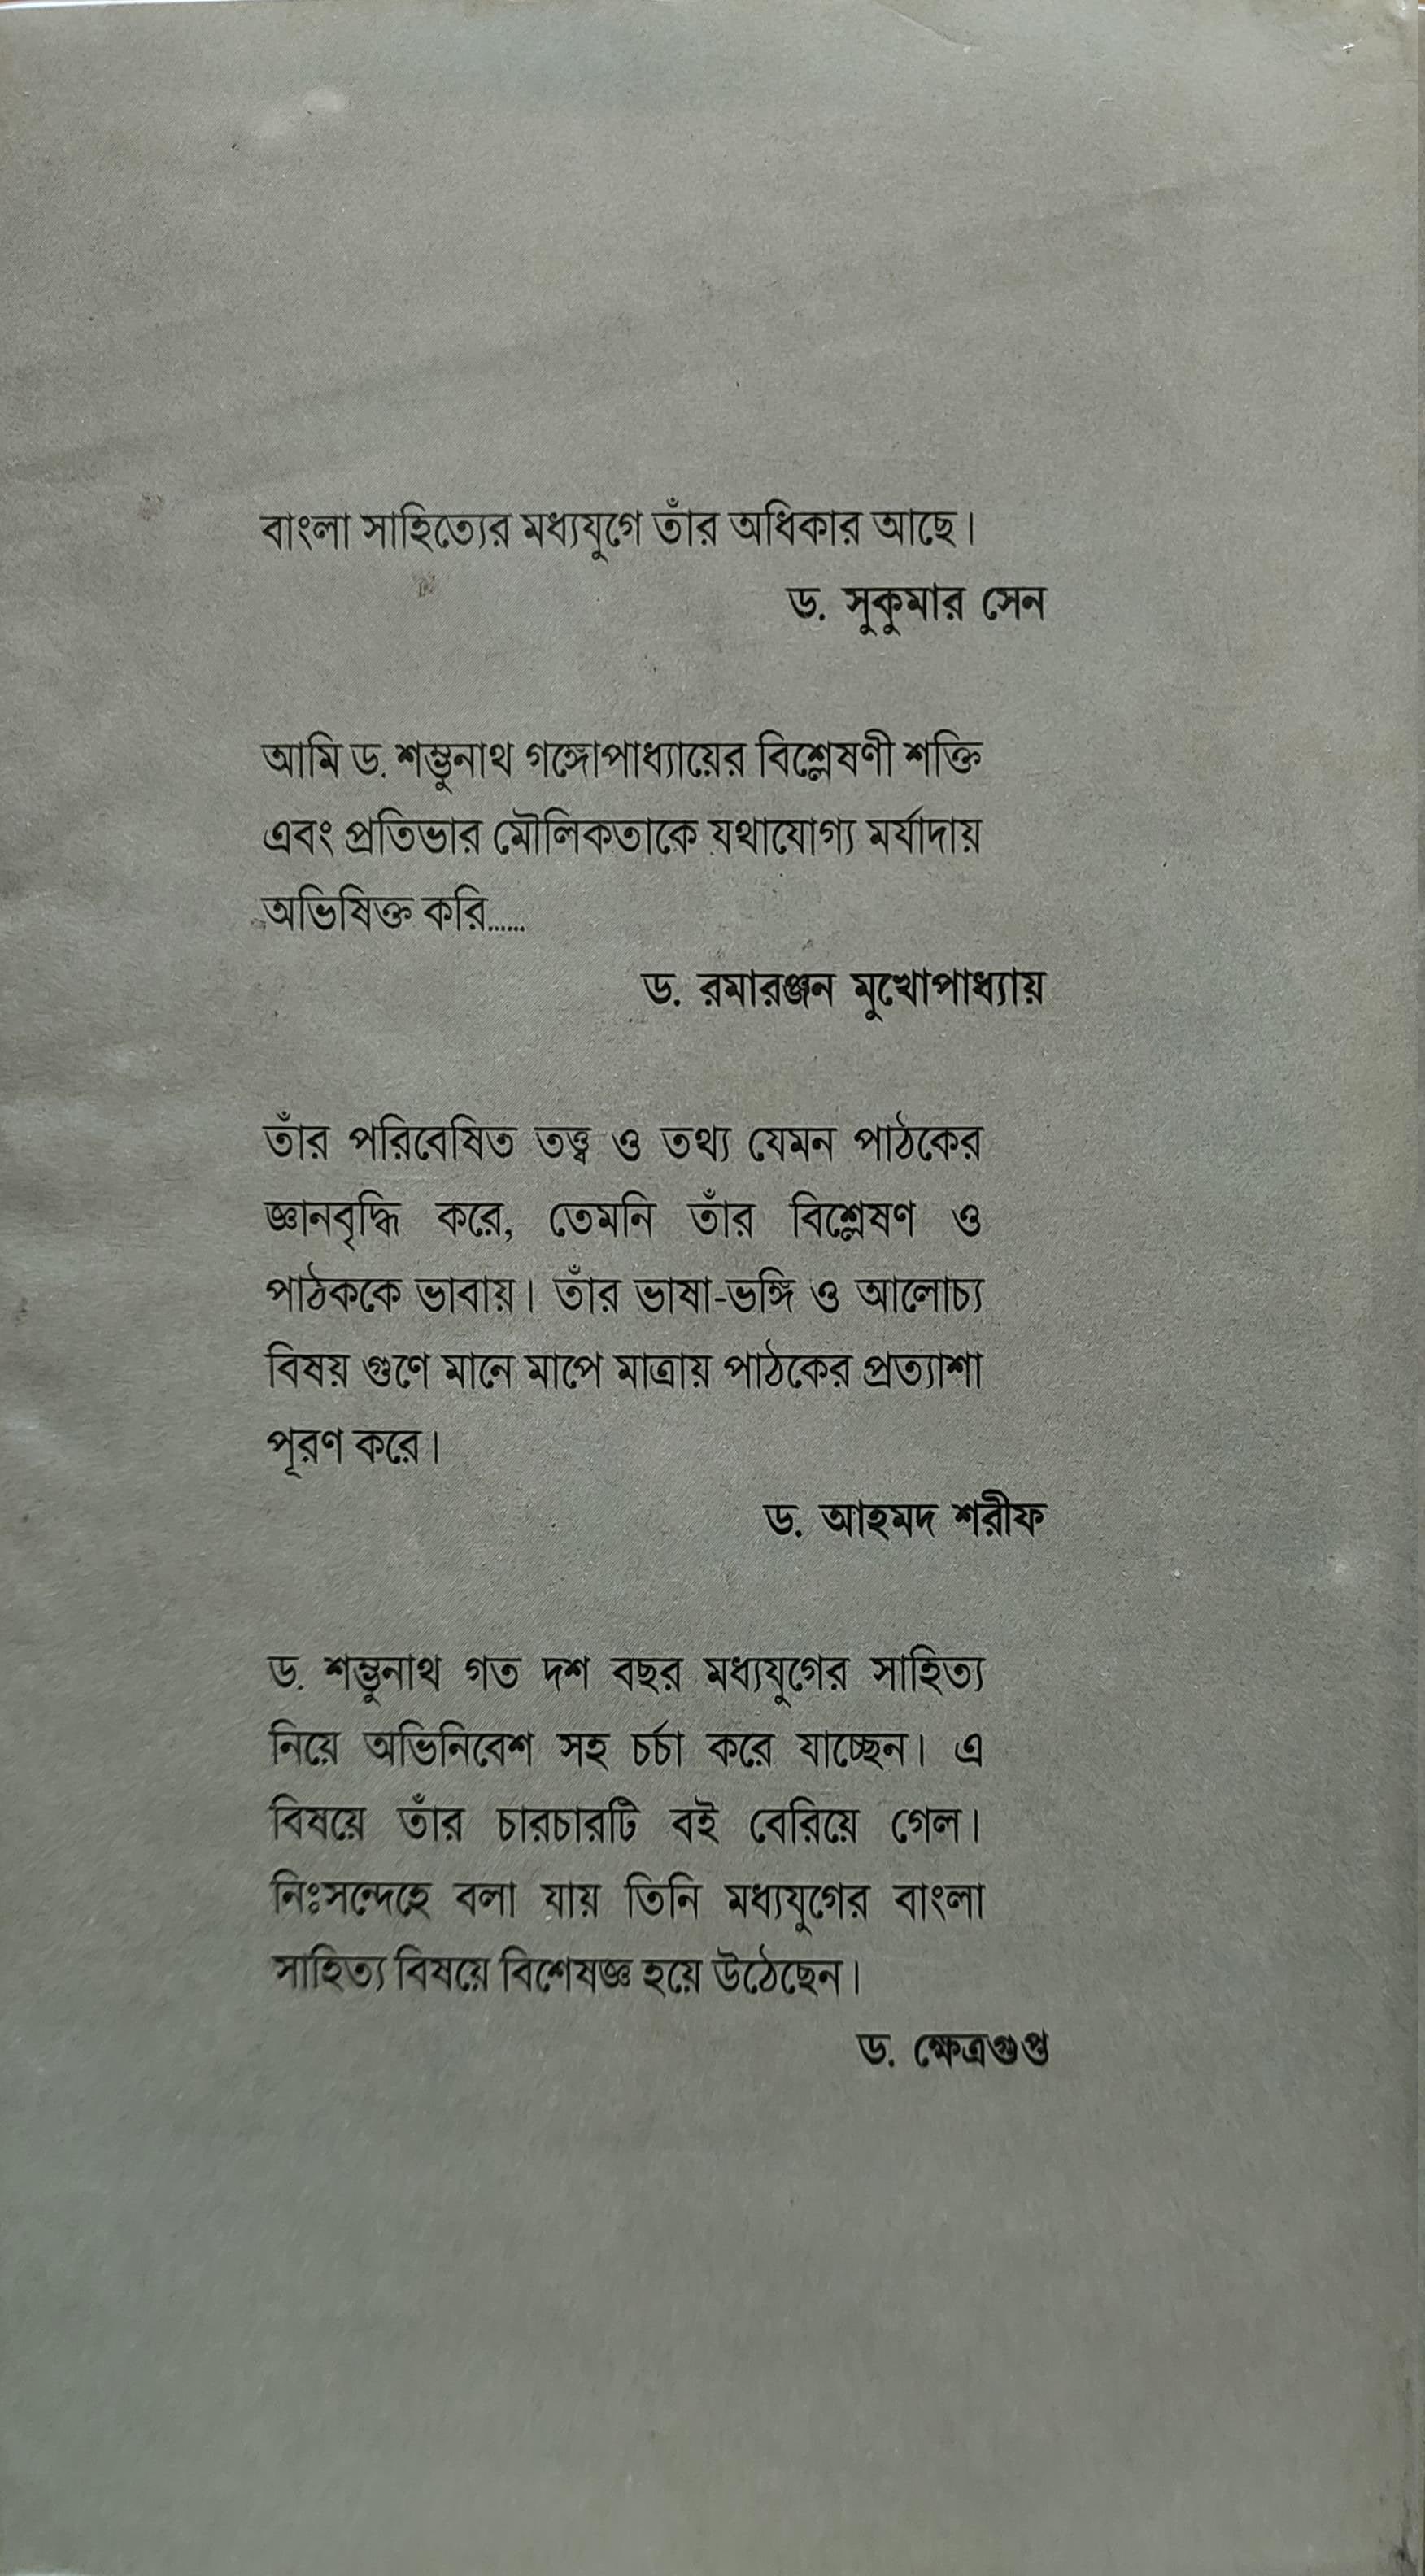 বাংলা সাহিত্যের মধ্যযুগে তাঁর অধিকার আছে।
ড. সুকুমার সেন
আমি ড. শম্ভুনাথ গঙ্গোপাধ্যায়ের বিশ্লেষণী শক্তি
এবং প্রতিভার মৌলিকতাকে যথাযোগ্য মর্যাদায়
অভিষিক্ত করি......
ড. রমারঞ্জন মুখোপাধ্যায়
তাঁর পরিবেষিত তত্ত্ব ও তথ্য যেমন পাঠকের
জ্ঞানবৃদ্ধি করে, তেমনি তাঁর বিশ্লেষণ ও
পাঠককে ভাবায়। তাঁর ভাষা-ভঙ্গি ও আলোচ্য
বিষয় গুণে মানে মাপে মাত্রায় পাঠকের প্রত্যাশা
পূরণ করে।
ড. আহমদ শরীফ
ড. শম্ভুনাথ গত দশ বছর মধ্যযুগের সাহিত্য
নিয়ে অভিনিবেশ সহ চর্চা করে যাচ্ছেন। এ
বিষয়ে তাঁর চারচারটি বই বেরিয়ে গেল।
নিঃসন্দেহে বলা যায় তিনি মধ্যযুগের বাংলা
সাহিত্য বিষয়ে বিশেষজ্ঞ হয়ে উঠেছেন।
ড. ক্ষেত্রগুপ্ত